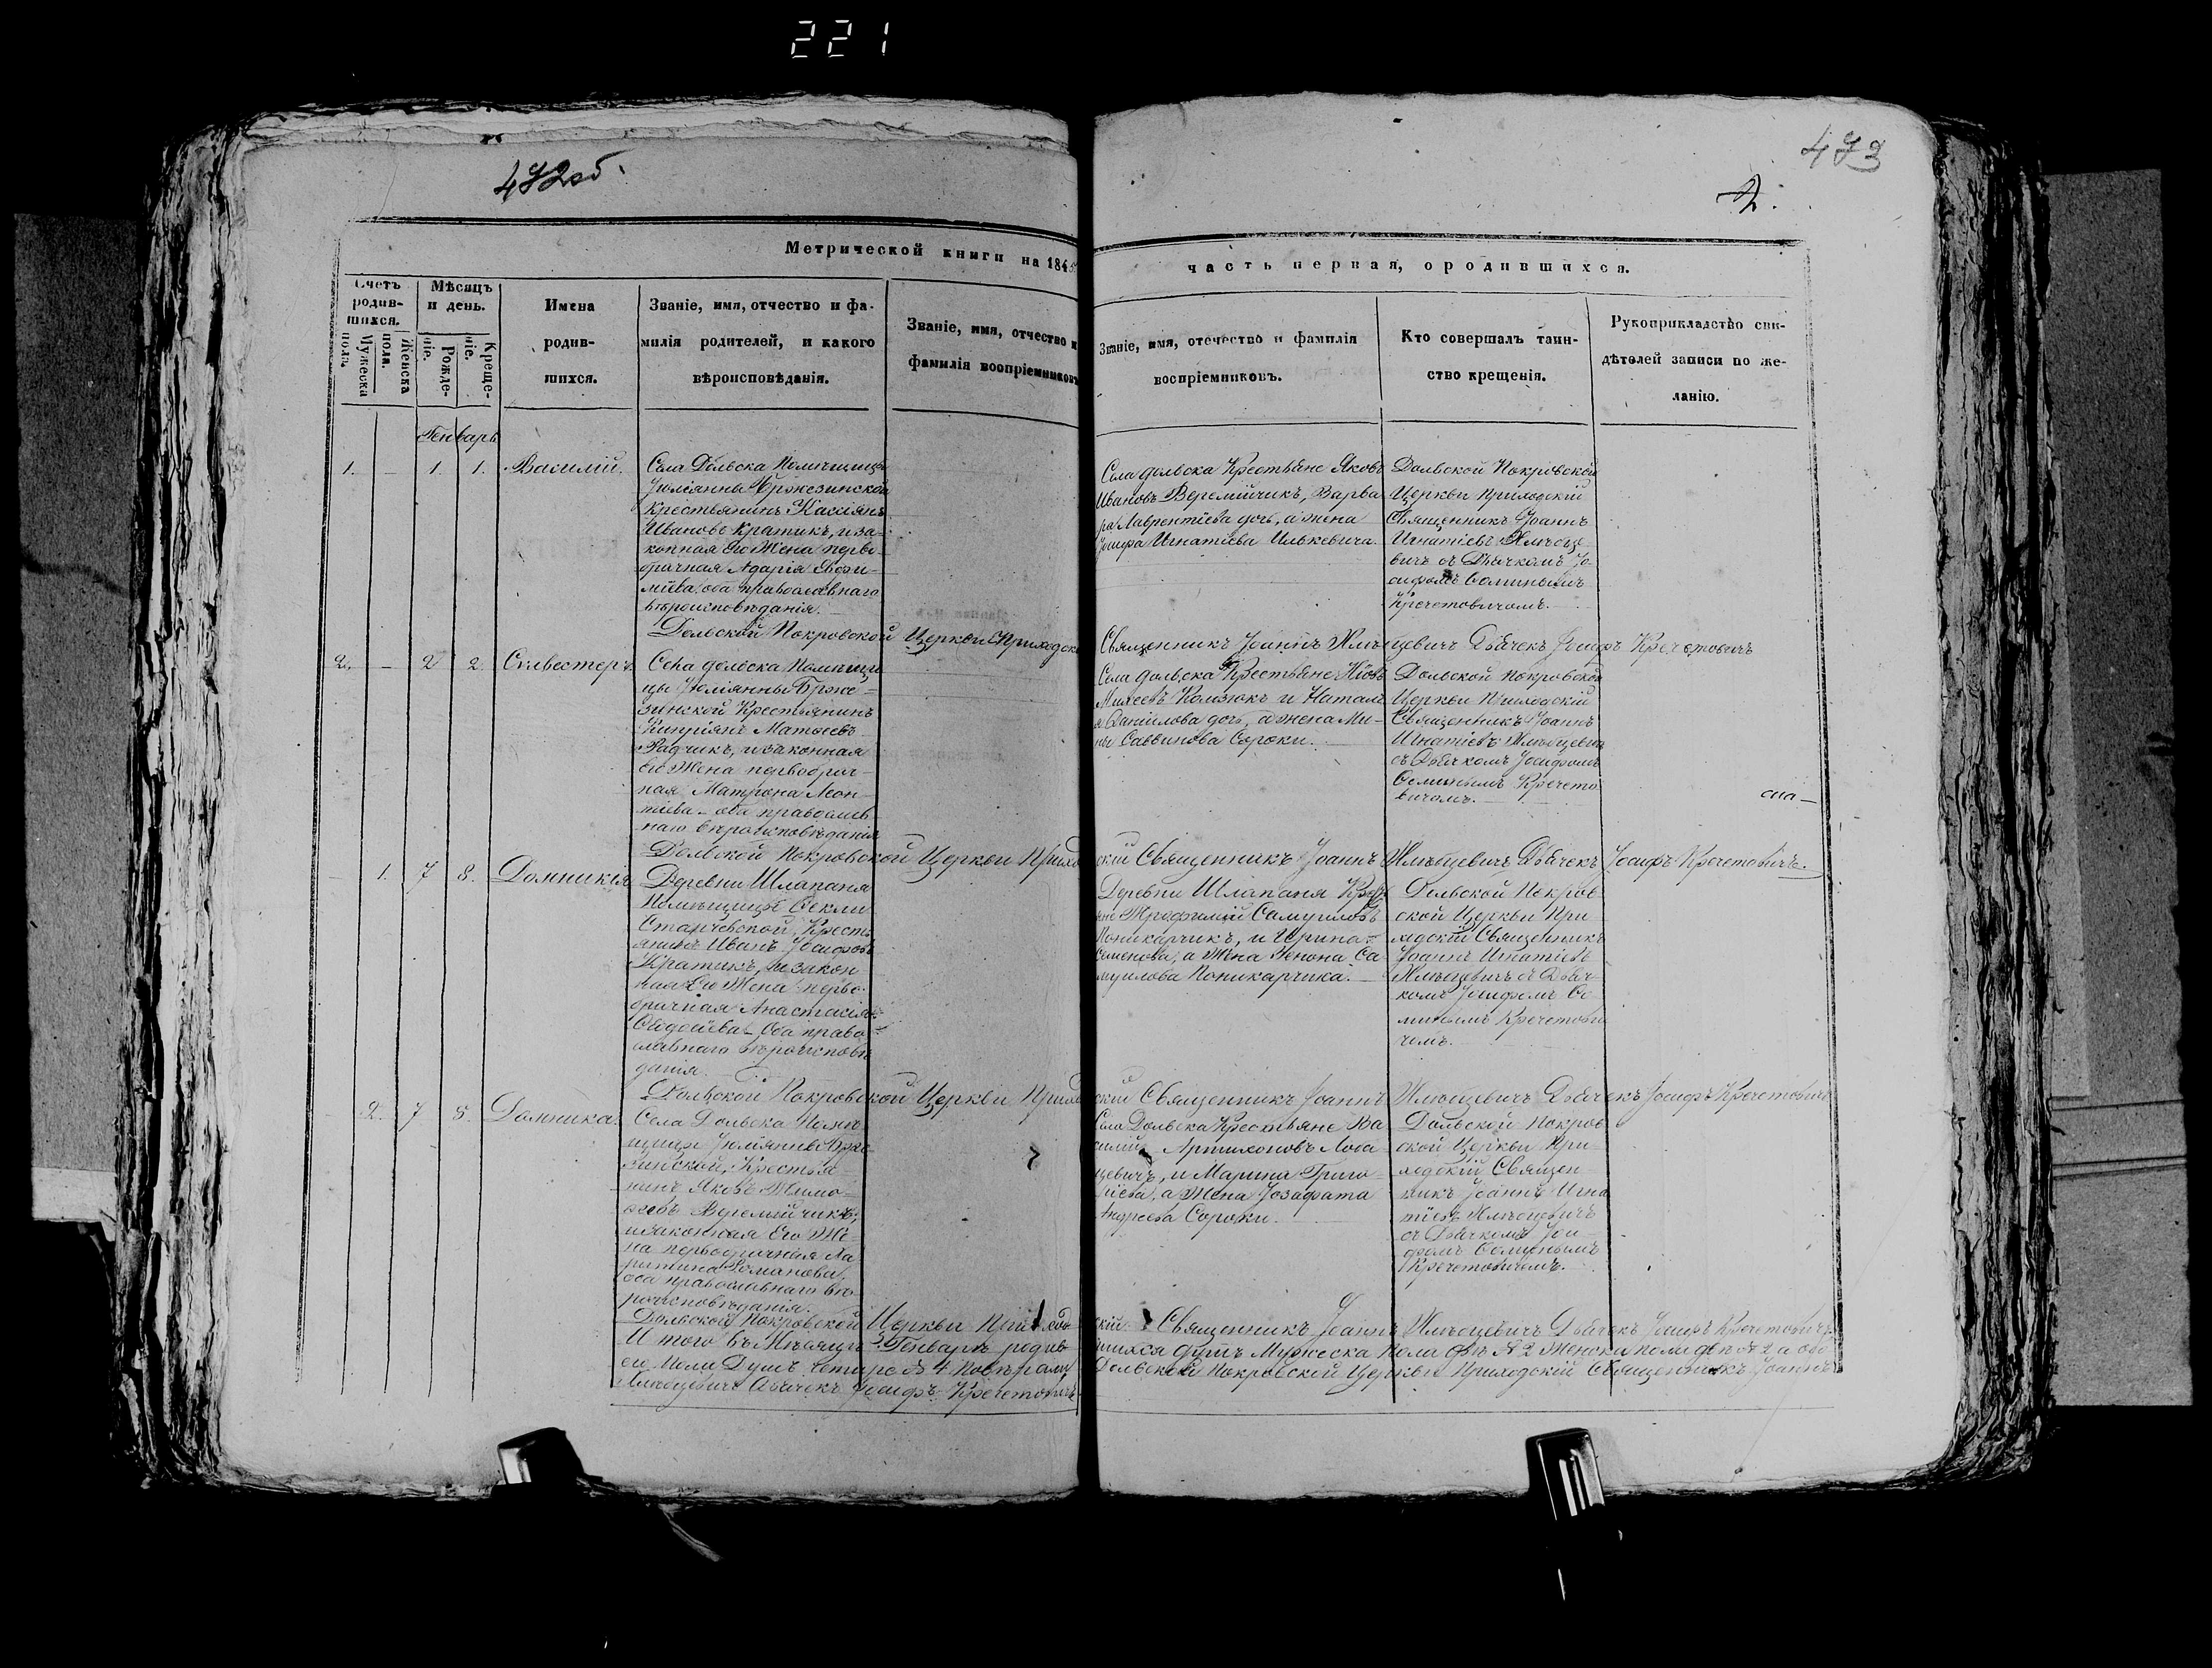 221
472об.
473
2.
Метрической книги на 184
часть первая, о родившихся.
Счетъ родив-
шихся.
Мужеска
пола.
Женска
пола.
Мѣсяцъ
и день.
Рожде-
ніе.
Креще-
ніе.
Имена
родив-
шихся.
Званіе, имя, отчество и фа-
милія родителей, и какого
вѣроисповѣданія.
Званіе, имя, отчество и
фамилія воопріемниковъ
Званіе, имя, отечество и фамилія
воспріемниковъ.
Кто совершалъ таин-
ство крещенія.
Рукоприкладство сви-
дѣтелей записи по же-
ланію.
Генварь
1. – 1. 1. Василій.
Села Дольска Помѣщицы
Юліянны Бржезинской
Крестьянинъ Кассіянъ
Ивановъ Кратикъ, и за-
конная Его Жена перво-
брачная
оба православнаго
вѣроисповѣданія.
Села дольска Крестьяне Яковъ
Ивановъ Веремійчикъ, Варва
ра Лаврентіева дочь, а жена
Іосифа Игнатіева Илькевича.
Дольской Покровской
Церкви приходскій
Священникъ Іоаннъ
Игнатіевъ Ямъще
вичъ съ Дьячкомъ Іо
сифомъ Соминымъ
Кречетовичомъ.
Дольской Покровской Церкви Приходск
Священникъ Іоаннъ Ямъщевичъ Дьячекъ Іосифъ Кречетовичъ
2. – 2 2 Силвестеръ
Села дольска Помѣщи
цы Юліянны Брже-
зинской Крестьянинъ
Кипріянъ Матѳеевъ
Радчикъ, и законная
его Жена первобрач-
ная Матрона Леон-
тіева – оба православ
наго вѣроисповѣданія
Села дольска Крестьяне Іовъ
Михеевъ Комзюкъ и Натали
я Даніилова дочь, а жена Ми-
ны Саввинова Сороки.
Дольской Покровской
Церкви Приходскій
Священникъ Іоаннъ
Игнатіевъ Ямъщевичъ
съ Дьячкомъ Іосифомъ
Соминымъ Кречето
вичомъ.
Дольской Покровской Церкви Прихо
скій Священникъ Іоаннъ Ямъщевичъ Дьячекъ Іосифъ Кречетовичъ.
1. 7 8. Домникія
Деревни Шлапаня
Помѣщицы Текли
Крестья
янинъ Иванъ Іосифовъ
Кратикъ, и закон
ная Его Жена перво-
брачная Анастасія
Овдѣіева – Оба право-
славнаго вѣроисповѣ
данія.
Деревни Шлапаня
яне Трофимій Самуиловъ
Поникарчикъ, и Ирина
Семенова, а Жена Зенона Са
муилова Поникарчика.
Дольской Покров
ской Церкви При
ходскій Священникъ
Іоаннъ Игнатіевъ
Ямъщевичъ съ Дьяч-
комъ Іосифомъ Со
минымъ Кречетови
чемъ.
Дольской Покровской Церкви Прихо
скій Священникъ Іоаннъ Ямъщевичъ Дьячекъ Іосифъ Кречетовичъ
2. 7 8. Домника.
Села Дольска Помѣ
щицы Юліянны Брже
зинской, Крестья
нинъ Яковъ Тимо-
ѳеевъ Веремійчикъ,
и законная Его Же-
на первобрачная Ха
ритина Романова,
оба православнаго вѣ
роисповѣданія.
Села Дольска Крестьяне Ва
силій Артимоновъ
цевичъ, и Марина Григо
ріева, а Жена Іозафата
Андреева Сороки.
Дольской Покров
ской Церкви При
ходскій Священ
никъ Іоаннъ Игна
тіевъ Ямъщевичъ
съ Дьячкомъ Іоси
фомъ Соминымъ
Кречетовичемъ.
Дольской Покровской Церкви Приходо
скій Священникъ Іоаннъ Ямъщевичъ Дьячекъ Іосифъ Кречетовичъ.
И того въ Мѣсяцѣ Генварѣ родив
шихся душъ Мужеска пола двѣ № 2 Женска пола двѣ № 2 а обо
его Пола Душъ четыре № 4
Дольской Покровской Церкви Приходскій Священникъ Іоаннъ
Ямъщевичъ Дьячекъ Іосифъ Кречетовичъ